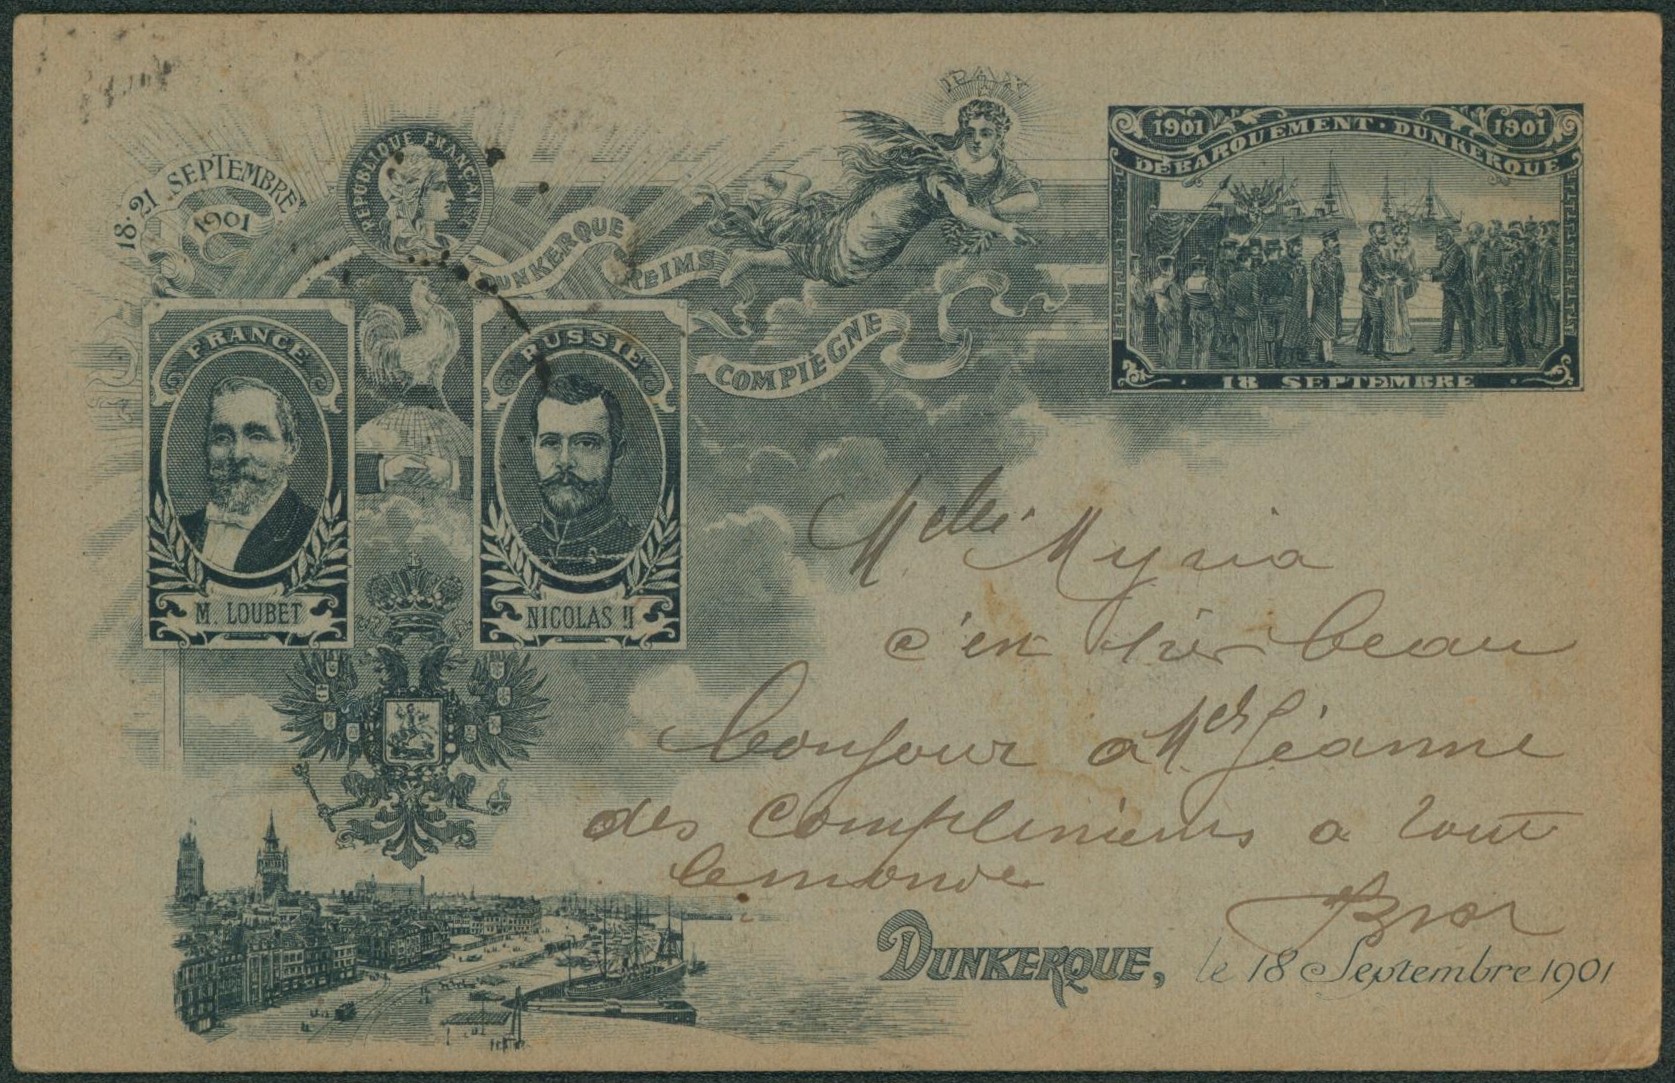 18·21 SEPTEMBRE
1901
REPUBLIQUE FRANÇAISE
DUNKERQUE
REIMS
COMPIÈGNE
PAX
1901 1901
DÉBARQUEMENT · DUNKERQUE
18 SEPTEMBRE
FRANCE
M. LOUBET
RUSSIE
NICOLAS II
Melle Myria
c'est très beau
bonjour a Melle Jéanne
des compliments a tout
le monde
DUNKERQUE, le 18 Septembre 1901